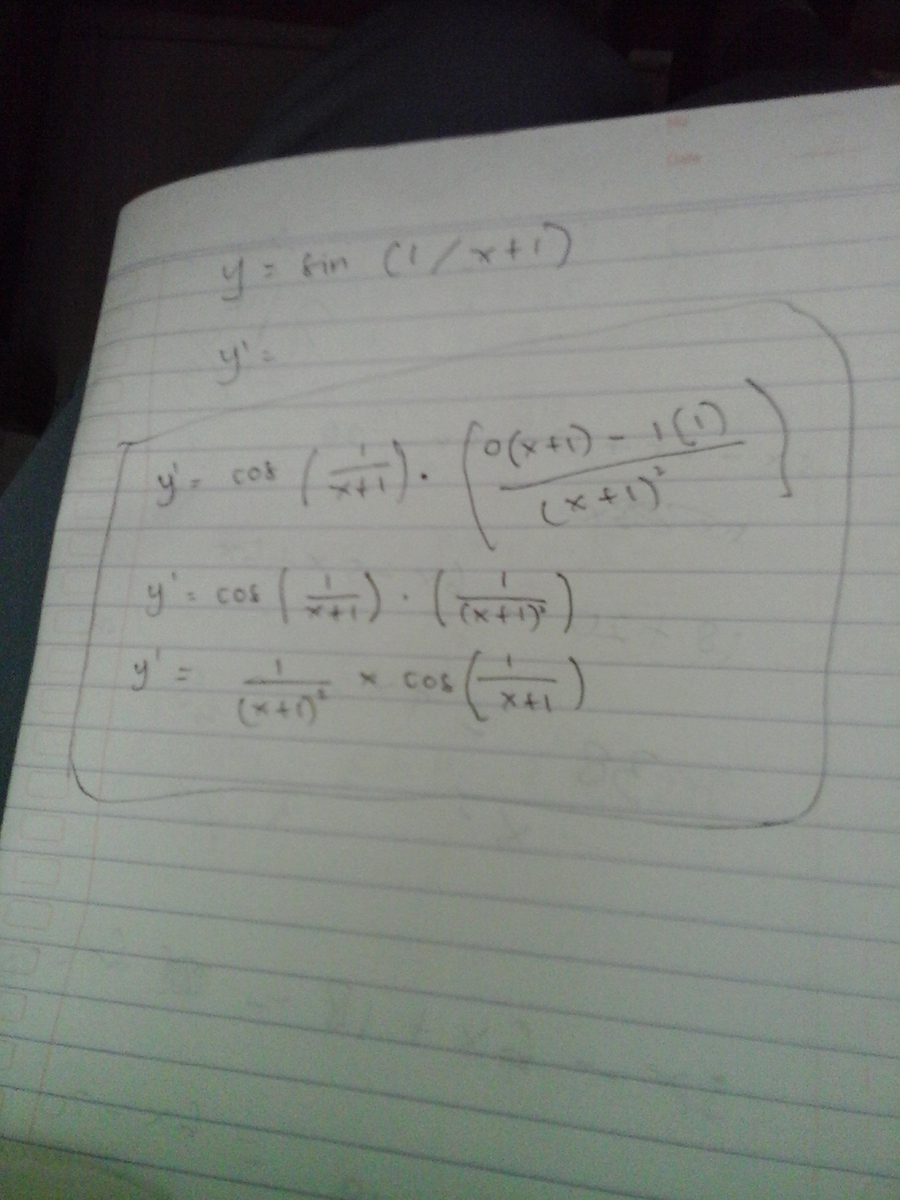 No
Date
y = sin (1/x+1)
y' =
y' = cos (1/(x+1)) · (0(x+1) - 1(1)/(x+1)²)
y' = cos (1/(x+1)) · (1/(x+1)²)
y' = 1/(x+1)² x cos (1/(x+1))